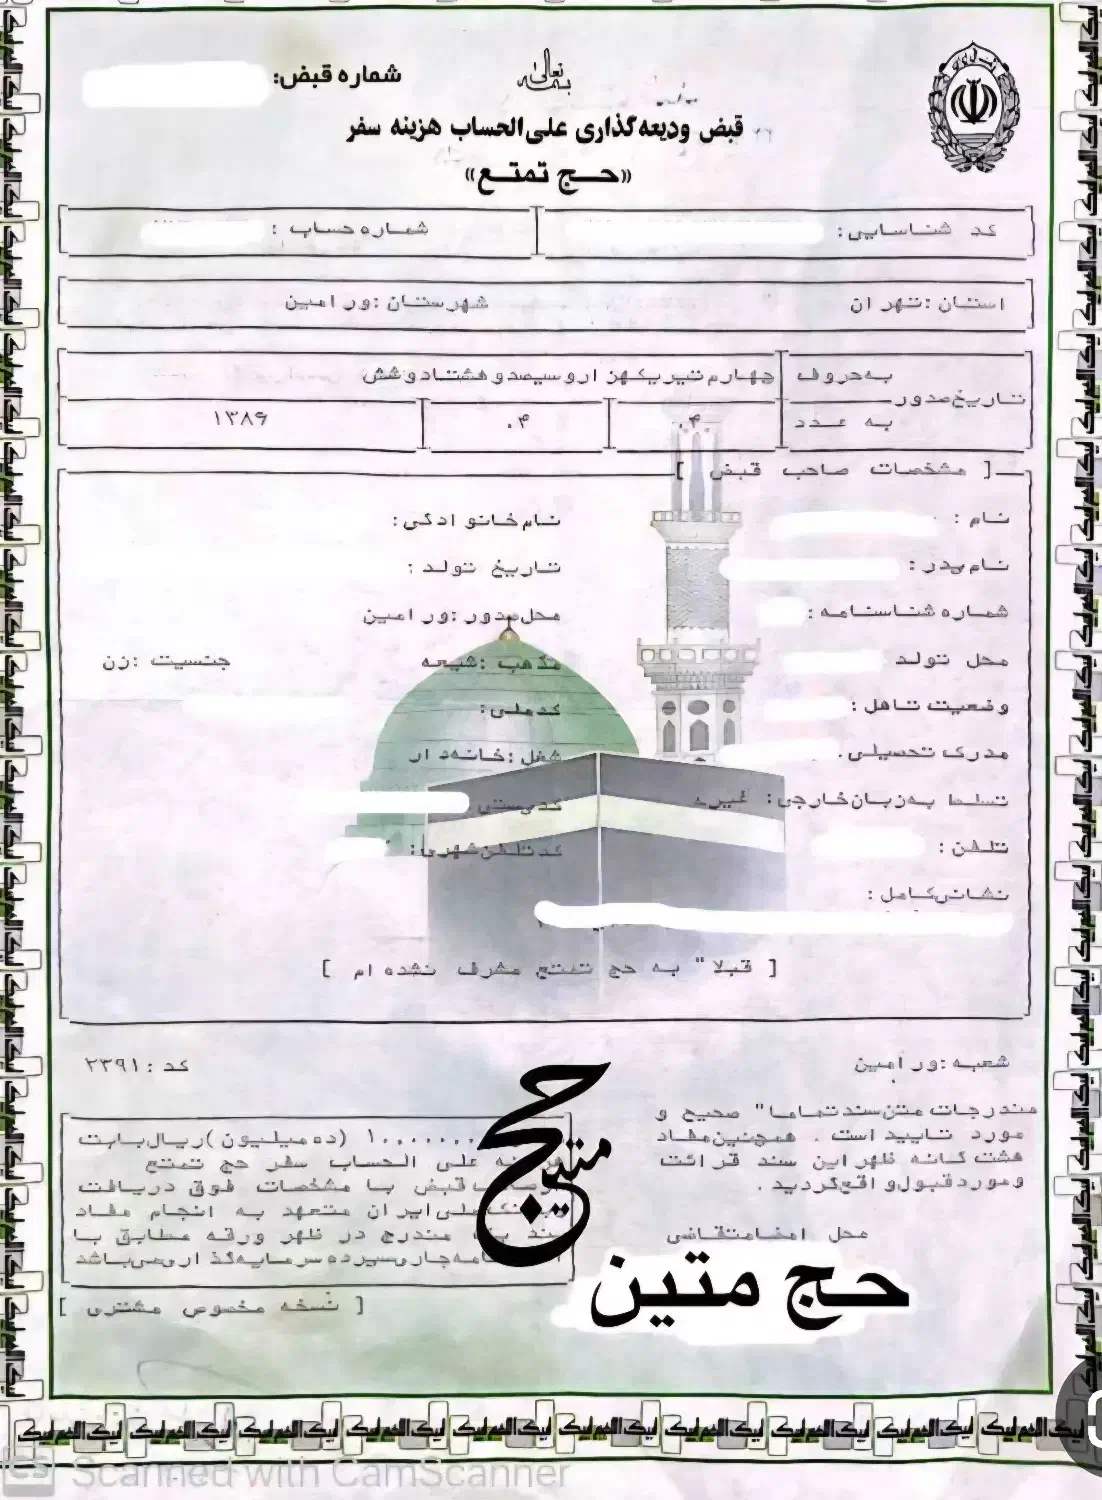 بسمه تعالی
شماره قبض:
قبض ودیعه گذاری علی الحساب هزینه سفر
«حج تمتع»
کد شناسایی:
شماره حساب :
استان :تهران
شهرستان :ورامین
تاریخ صدور
به حروف
چهارم تیر یکهزار و سیصد و هشتاد و شش
به عدد
۰۴
۰۴
۱۳۸۶
[ مشخصات صاحب قبض ]
نام :
نام خانوادگی:
نام پدر :
تاریخ تولد :
شماره شناسنامه :
محل صدور :ورامین
محل تولد
مذهب :شیعه
جنسیت :زن
وضعیت تاهل :
کد ملی:
مدرک تحصیلی
شغل :خانه دار
تسلط به زبان خارجی: غیره
کد پستی
تلفن :
کد تلفن شهری:
نشانی کامل :
[ قبلا" به حج تمتع مشرف نشده ام ]
شعبه :ورامین
کد :۲۳۹۱
مندرجات متن سند تماما" صحیح و
مورد تایید است . همچنین مفاد
هشت گانه ظهر این سند قرائت
و مورد قبول واقع گردید .
محل امضا متقاضی
(ده میلیون )ریال بابت
علی الحساب سفر حج تمتع
قبض با مشخصات فوق دریافت
ملی ایران متعهد به انجام مفاد
مندرج در ظهر ورقه مطابق با
جاری سپرده سرمایه گذاری می باشد
[ نسخه مخصوص مشتری ]
حج
متین
حج متین
لبیک اللهم لبیک
CS Scanned with CamScanner